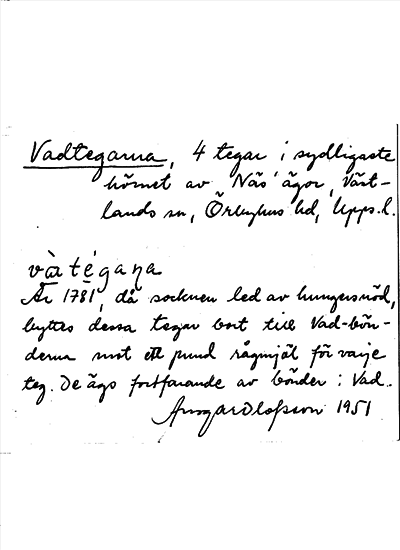 Vadtegarna, 4 tegar i sydligaste
hörnet av Näs' ägor, Väst-
lands sn, Örbyhus hd, Upps. l.
vàtégaṇa
År 1781, då socknen led av hungersnöd,
byttes dessa tegar bort till Vad-bön-
derna mot ett pund rågmjöl för varje
teg. De ägs fortfarande av bönder i Vad.
Ansgar Olofsson 1951